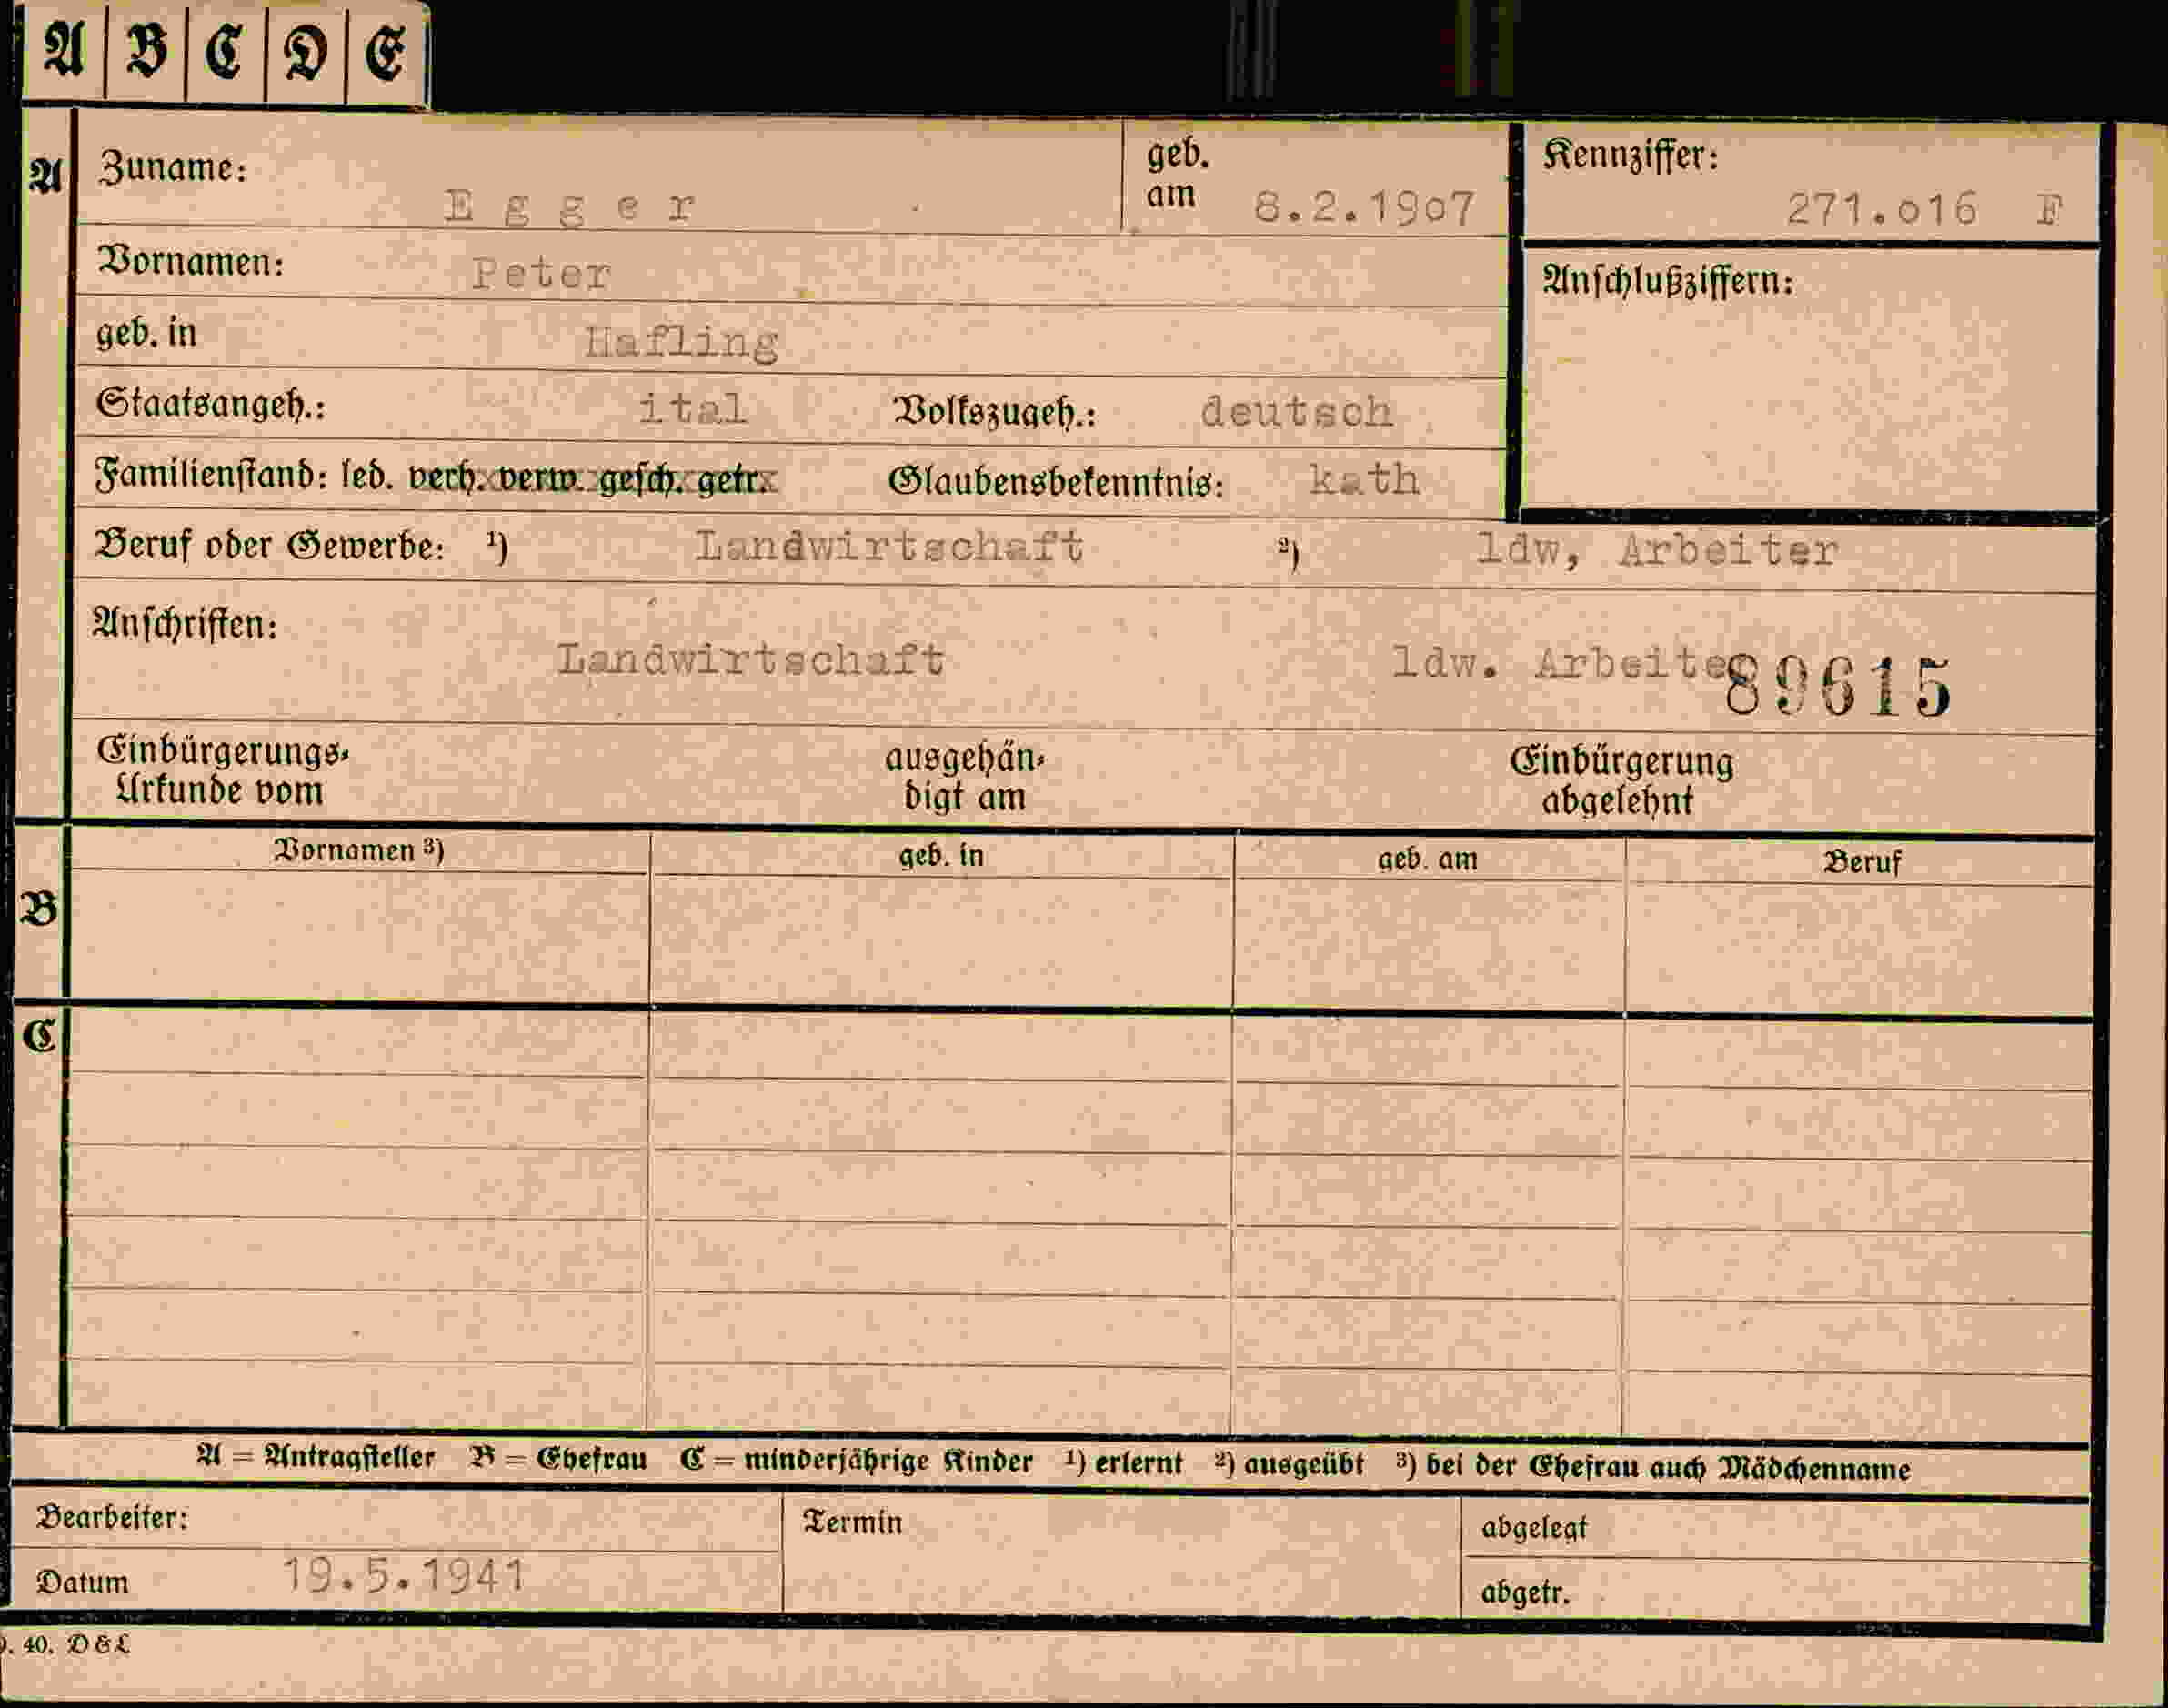 A B C D E
A Zuname: Egger geb. am 8.2.1907 Kennziffer: 271.016 F
Vornamen: Peter Anschlußziffern:
geb. in Hafling
Staatsangeh.: ital Volkszugeh.: deutsch
Familienstand: led. verh. verw. gesch. getr. Glaubensbekenntnis: kath
Beruf oder Gewerbe: ¹) Landwirtschaft ²) ldw, Arbeiter
Anschriften:
Landwirtschaft ldw. Arbeiter 89615
Einbürgerungs- ausgehän- Einbürgerung
Urkunde vom digt am abgelehnt
Vornamen ³) geb. in geb. am Beruf
B
C
A = Antragsteller B = Ehefrau C = minderjährige Kinder ¹) erlernt ²) ausgeübt ³) bei der Ehefrau auch Mädchenname
Bearbeiter: Termin abgelegt
Datum 19.5.1941 abgetr.
. 40. D & L